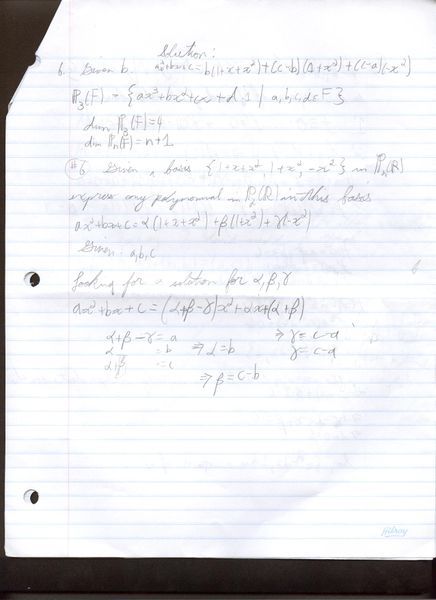 Solution:
6. Given b. ax²+bx+c = b(1+x+x²)+(c-b)(1+x²)+(c-a)(-x²)
P₃(F) = {ax³+bx²+cx+d·1 | a,b,c,d∈F}
dim P₃(F)=4
dim Pₙ(F)=n+1
#6 Given a basis {1+x+x², 1+x², -x²} in P₂(R)
express any polynomial in P₂(R) in this basis
ax²+bx+c = α(1+x+x²)+β(1+x²)+γ(-x²)
Given: a,b,c
Looking for a solution for α,β,γ
ax²+bx+c = (α+β-γ)x²+αx+(α+β)
α+β-γ = a ⇒ γ = c-a
α = b ⇒ α=b γ = c-a
α+β = c
⇒ β = c-b
Hilroy